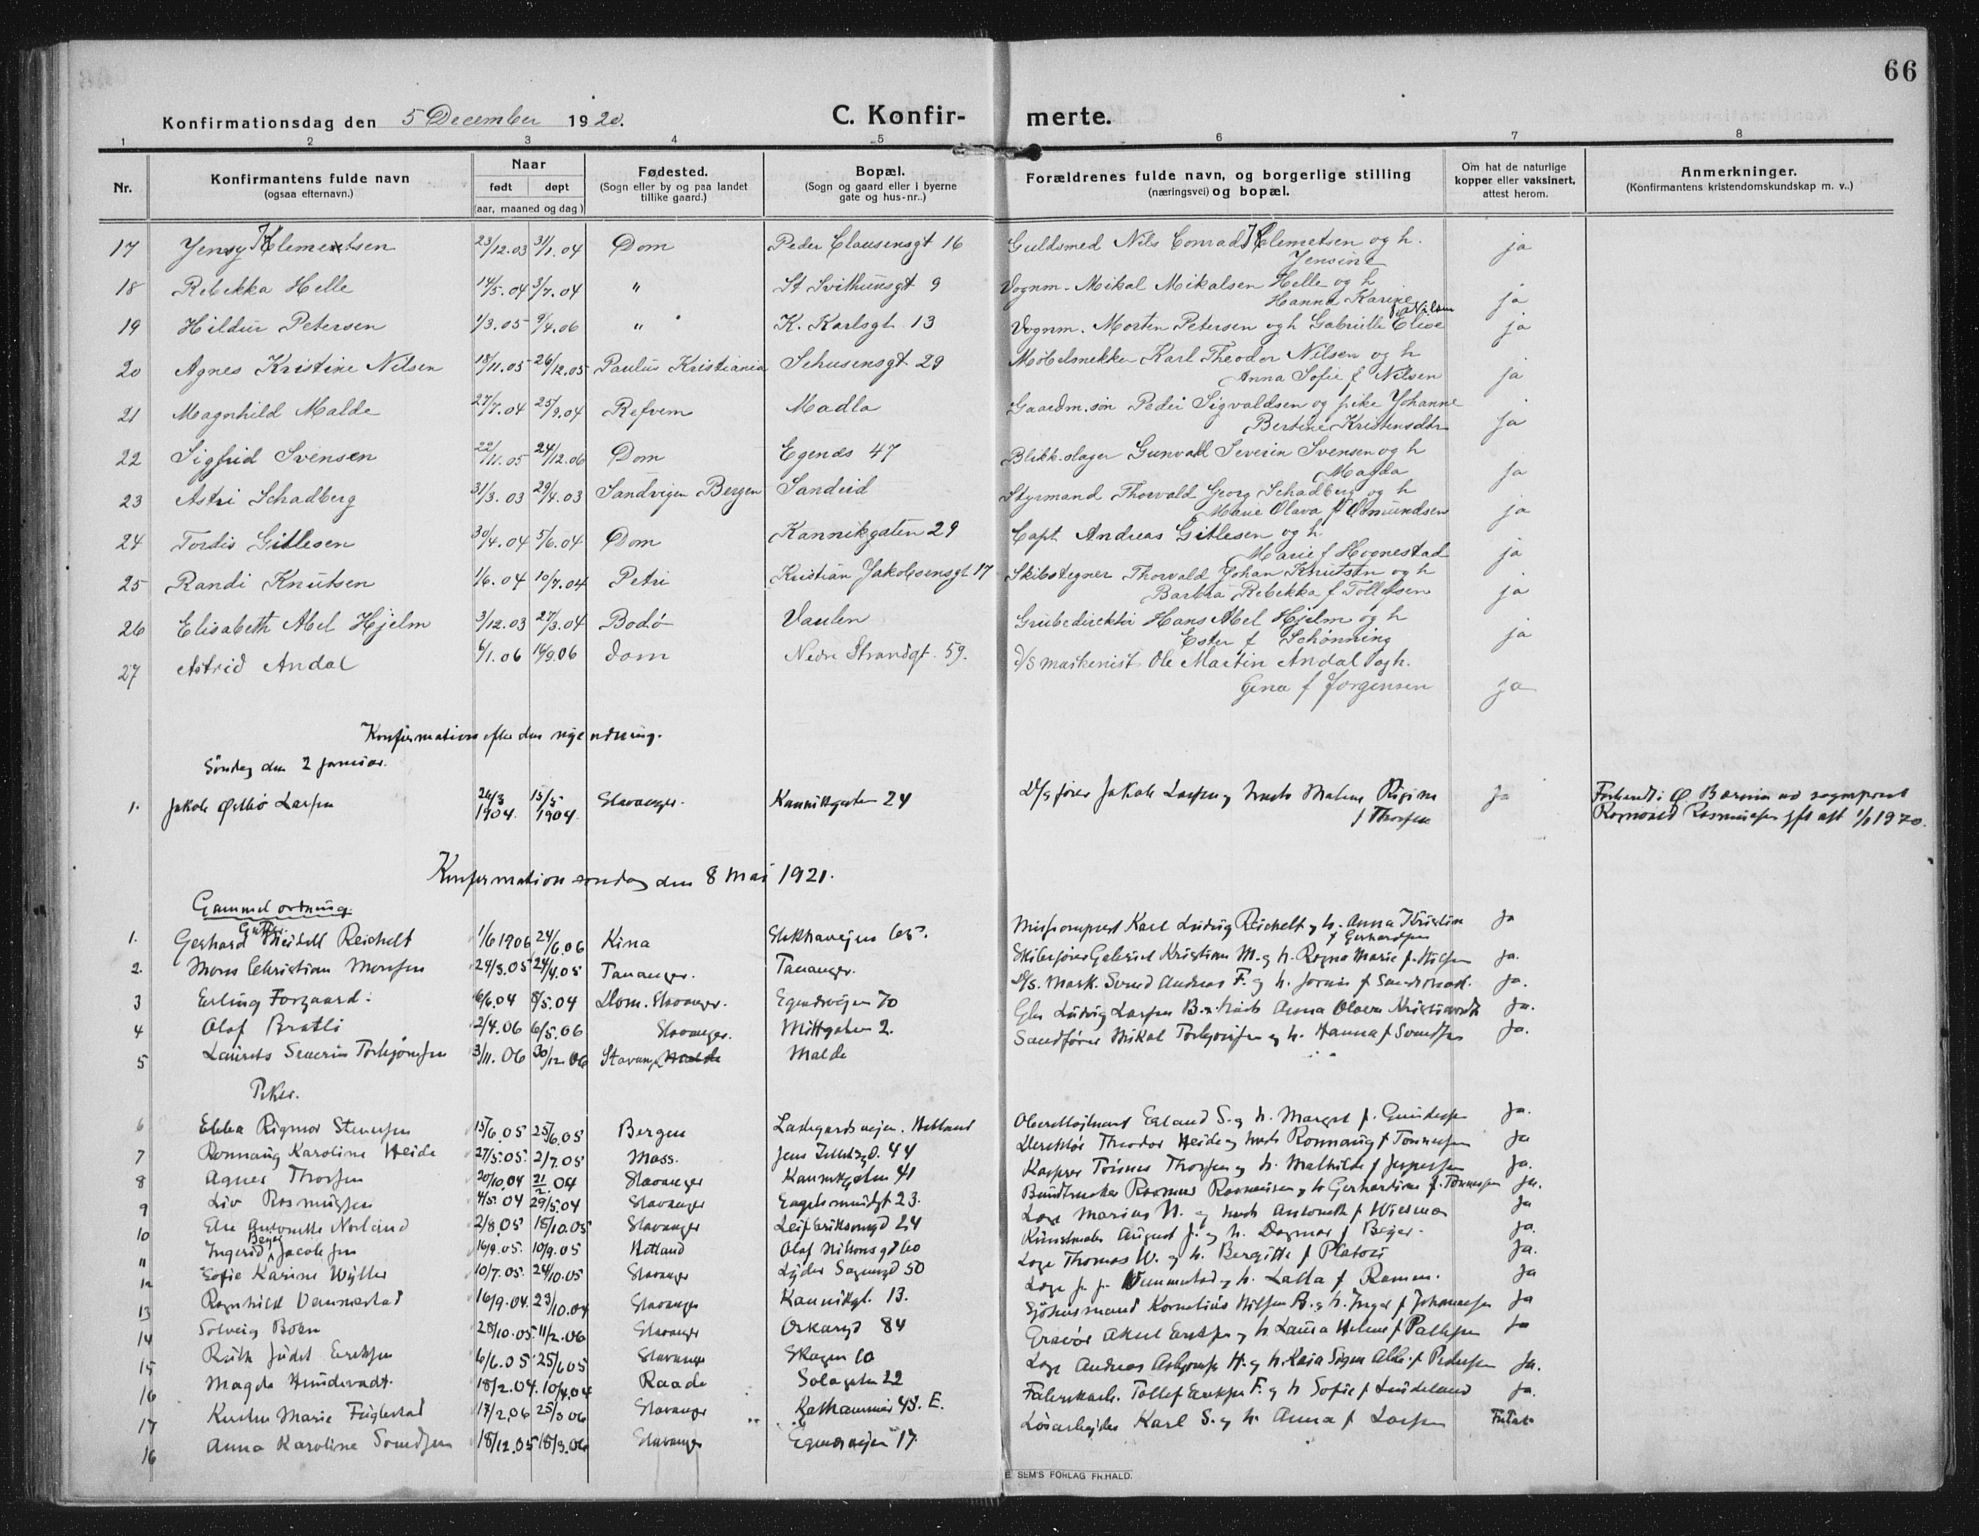 66
Konfirmationsdag den 5 December 1920.
C. Konfirmerte.
1 2 3 4 5 6 7 8
Nr. Konfirmantens fulde navn (ogsaa efternavn.) Naar født døpt (aar, maaned og dag) Fødested. (Sogn eller by og paa landet tillike gaard.) Bopæl. (Sogn og gaard eller i byerne gate og hus-nr..) Forældrenes fulde navn, og borgerlige stilling (næringsvei) og bopæl. Om hat de naturlige kopper eller vaksinert, attest herom. Anmerkninger. (Konfirmantens kristendomskundskap m. v..)
17 Jenny Klementsen 23/12.03 31/1.04 Dom Peder Clausensgt 16 Guldsmed Nils Conrad Klemetsen og h. ja
Jensine
18 Rebekka Helle 14/5.04 3/7.04 " St Svithunsgt 9 Vognm. Mikal Mikalsen Helle og h ja
Hanna Karine
19 Hildur Petersen 1/3.05 9/4.06 " K. Karlsgt. 13 Vognm. Morten Petersen og h Gabrielle Elise ja
f. Nilsen
20 Agnes Kristine Nilsen 18/11.05 26/12.05 Paulus Kristiania Sehusensgt 29 Møbelsnekker Karl Theodor Nilsen og h
Anna Sofie f Nilsen ja
21 Magnhild Malde 27/7.04 25/9.04 Refvem Madla Gaardm.søn Peder Sigvaldsen og pike Johanne
Bertine Kristensdtr ja
22 Sigfrid Svensen 22/11.05 24/12.06 Dom Egenes 47 Blikkslager Gunvald Severin Svensen og h
Magda ja
23 Astri Schadberg 31/3.03 29/4.03 Sandvigen Bergen Sandeid Styrmand Thorvald Georg Schadberg og h
Marie Olava f Osmundsen ja
24 Tordis Gitlesen 30/4.04 5/6.04 Dom Kannikgaten 29 Capt. Andreas Gitlesen og h
Marie f Hognestad ja
25 Randi Knutsen 1/6.04 10/7.04 Petri Kristian Jakobsensgt 17 Skibstegner Thorvald Johan Knutsen og h
Barbra Rebekka f Tollefsen ja
26 Elisabeth Abel Hjelm 3/12.03 27/3.04 Bodø Vaulen Grubedirektør Hans Abel Hjelm og h
Ester f Schønning ja
27 Astrid Andal 6/1.06 16/9.06 Dom Nedre Strandgt. 59. D/S maskenist Ole Martin Andal og h.
Gina f Jørgensen ja
Konfirmation efter den nye ordning.
Søndag den 2 januar.
1. Jakob Østbø Larsen 24/3 1904. 15/5 1904. Stavanger. Kannikgaten 24 D/S fører Jakob Larsen og hust Malene Regine ja
f Thorsen
Konfirmation søndag den 8 mai 1921.
Gammel ordning
Gutter.
1. Gerhard Meidell Reichelt 1/6 1906 24/6.06 Kina Stokkaveien 65. Missionsprest Karl Ludvig Reichelt og h. Anna Kristine ja
f Gerhardsen
2. Mons Christian Monsen 24/3.05 24/4.05 Tananger. Tananger. Skibsfører Gabriel Kristian M. og h. Ragna Marie f. Nilsen ja.
3 Erling Forgaard. 6/6.04 8/5.04 Dom. Stavanger. Egenesveien 70 D/S. Mask. Svend Andreas F. og h. ja.
4 Olaf Bratli 2/4.06 6/5.06 Stavanger. Midtgaten 2. Ludvig Larsen B. og hust. Anna Olava ja.
5 Laurits Severin Torbjørnsen 3/11.06 30/12.06 Stavanger Malde Malde Sandfører Mikal Torbjørnsen og h. Hanna f Svendsen ja.
Piker.
6 Ebba Rigmor Stenersen 13/6.05 25/6.05 Bergen Ladegaardsveien. Hetland Oberstløitnant Erland S. og h. Margit f. Gundersen ja.
7 Rønnaug Karoline Heide 27/5.05. 2/7.05 Moss. Jens Zetlitzgd. 44 Direktør Theodor Heide og hust Rønnaug f Tønnesen ja
8 Agnes Thorsen 20/10.04 21/2.04 Stavanger Kannikgaten 41 Kasserer Tønnes Thorsen og h. Mathilde f Jespersen ja.
9 Liv Rasmussen 4/5.04 29/5.04 Stavanger Engelsmindegt 23. Bundtmaker Rasmus Rasmussen og h Gerhardine f. Tønnesen ja.
10 Else Antonette Norland 2/8.05 15/10.05 Stavanger Leif Eriksonsgd 24 Læge Marius N. og hust Antonette f Wiesman ja
11 Ingerid Beyer Jacobsen 16/9.05. 10/9.05 Hetland Olaf Nilsons gd 60 Kunstmaler August J. og h. Dagmar f Beyer. ja.
12 Sofie Karine Wyller 10/7.05. 24/10.05 Stavanger Lyder Sagensgd 50 Læge Thomas W. og h. Bergitte f Platou ja.
13 Ragnhild Vennerstad 16/9.04. 23/10.04 Stavanger Kannikgt. 13. Læge J. J. Vennerstad og h. Lalla f Ramm. ja
14 Solveig Boen 28/10.05. 11/2.06 Stavanger Oskarsgd 84 Sjømand Kornelius Nilsen B. og h. Inger f Johannesen ja
15 Ruth Judit Eriksen 6/6.05 25/6.05 Stavanger Skagen 10 Gravør Aksel Eriksen og h. Laura Helene f Pallesen ja
16 Magda Hundevadt. 18/2.04. 10/4.04 Raade Solagaten 22 Læge Andreas H. og h. f. Pedersen ja.
17 Kirsten Marie Fuglestad 17/2.06 25/3.06 Stavanger Rathammer 43. E. Fabrikarb. Tollef Eriksen F. og h Sofie f Lindeland ja.
16 Anna Karoline Svendsen 18/12.05 18/3.06 Stavanger Egenesveien 17. Løsarbeider Karl S. og h. Anna f Larsen
E SEM'S FORLAG FR.HALD.